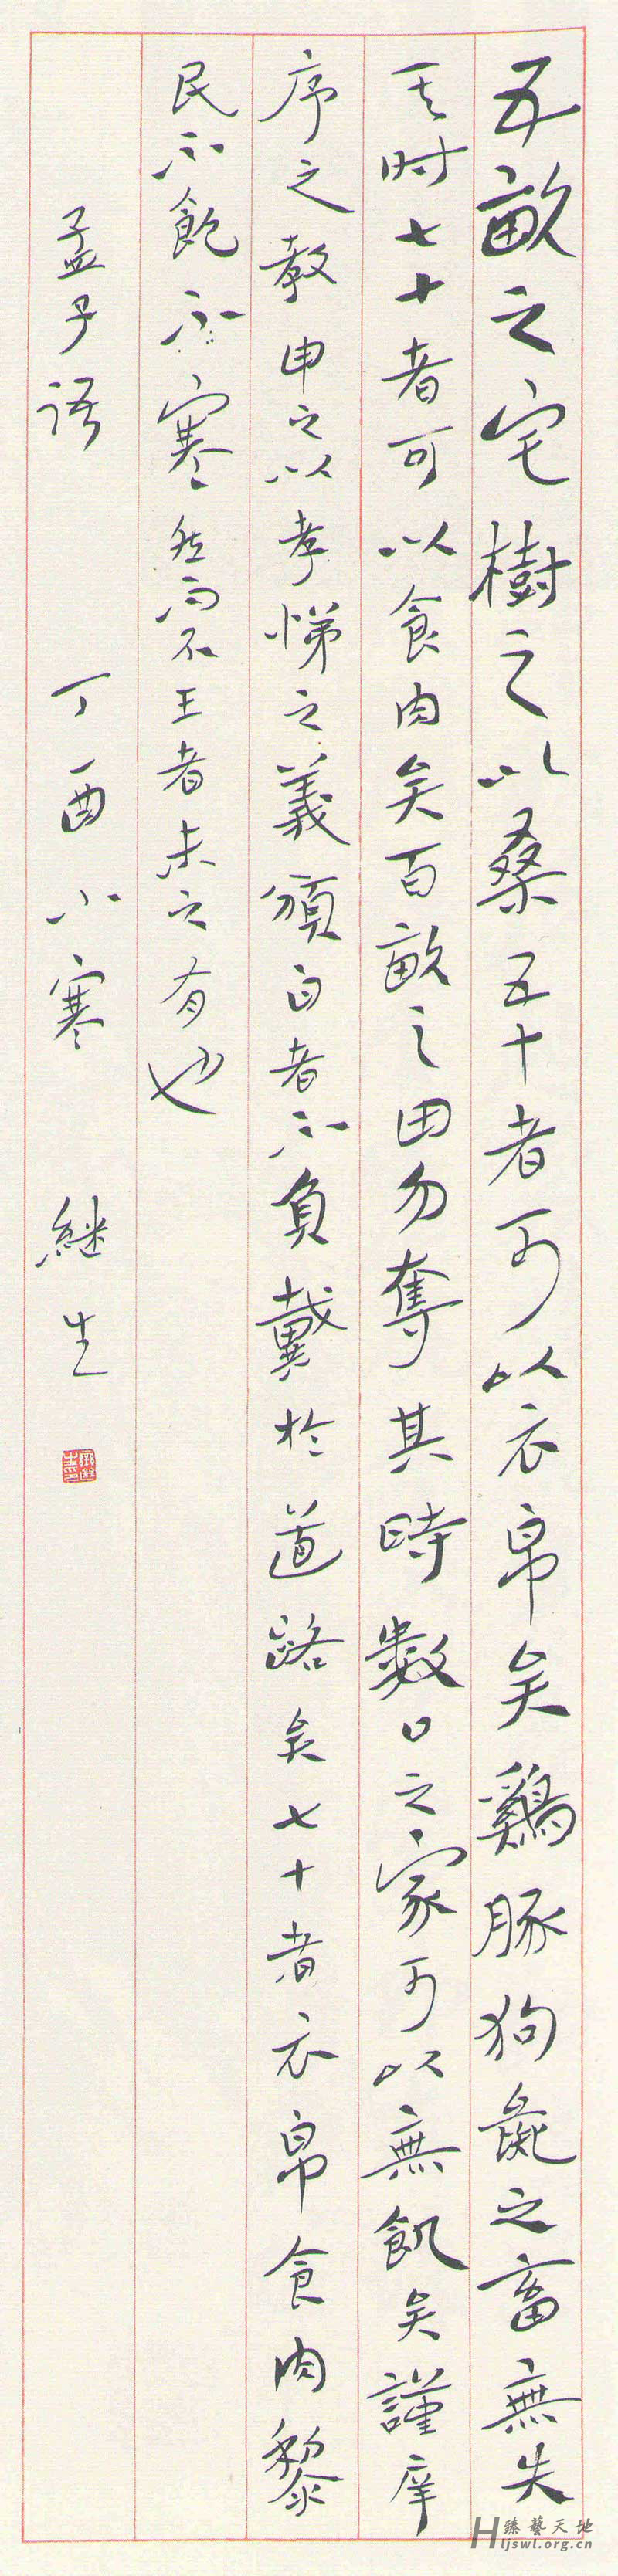 五畝之宅樹之以桑五十者可以衣帛矣鷄豚狗彘之畜無失
其时七十者可以食肉矣百畝之田勿奪其時數口之家可以無飢矣謹庠
序之教申之以孝悌之義頒白者不負戴於道路矣七十者衣帛食肉黎
民不飽不寒然而不王者未之有也
孟子语 丁酉小寒 継生
臻藝天地
Hljswl.org.cn